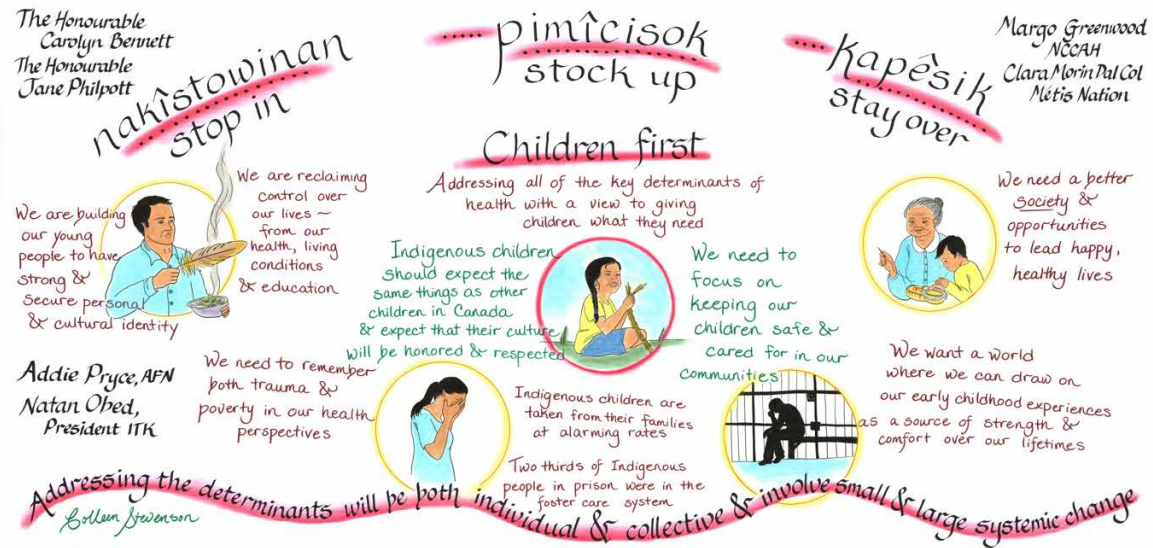 The Honourable
Carolyn Bennett
The Honourable
Jane Philpott
nakîstowinan
stop in
pimîcisok
stock up
kapêsik
stay over
Margo Greenwood
NCCAH
Clara Morin Dal Col
Métis Nation
Children first
Addressing all of the key determinants of
health with a view to giving
children what they need
We are building
our young
people to have
strong &
secure personal
& cultural identity
We are reclaiming
control over
our lives ~
from our
health, living
conditions
& education
Indigenous children
should expect the
same things as other
children in Canada
& expect that their culture
will be honored & respected
We need to
focus on
keeping our
children safe &
cared for in our
communities
We need a better
society &
opportunities
to lead happy,
healthy lives
Addie Pryce, AFN
Natan Obed,
President ITK
We need to remember
both trauma &
poverty in our health
perspectives
Indigenous children are
taken from their families
at alarming rates
Two thirds of Indigenous
people in prison were in the
foster care system
We want a world
where we can draw on
our early childhood experiences
as a source of strength &
comfort over our lifetimes
Addressing the determinants will be both individual & collective & involve small & large systemic change
Colleen Stevenson